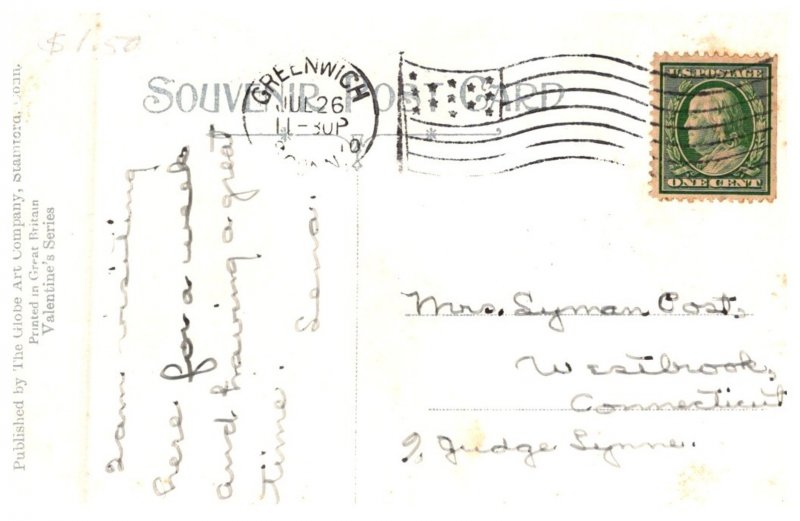 $1.50
SOUVENIR POST CARD
GREENWICH
JUL 26
11-30P
CONN.
U.S. POSTAGE
ONE CENT
Published by The Globe Art Company, Stamford, Conn.
Printed in Great Britain
Valentine's Series
I am visiting
here for a week
and having a great
time. Lena.
Mrs. Lyman Post,
Westbrook,
Connecticut
Judge Lynne.